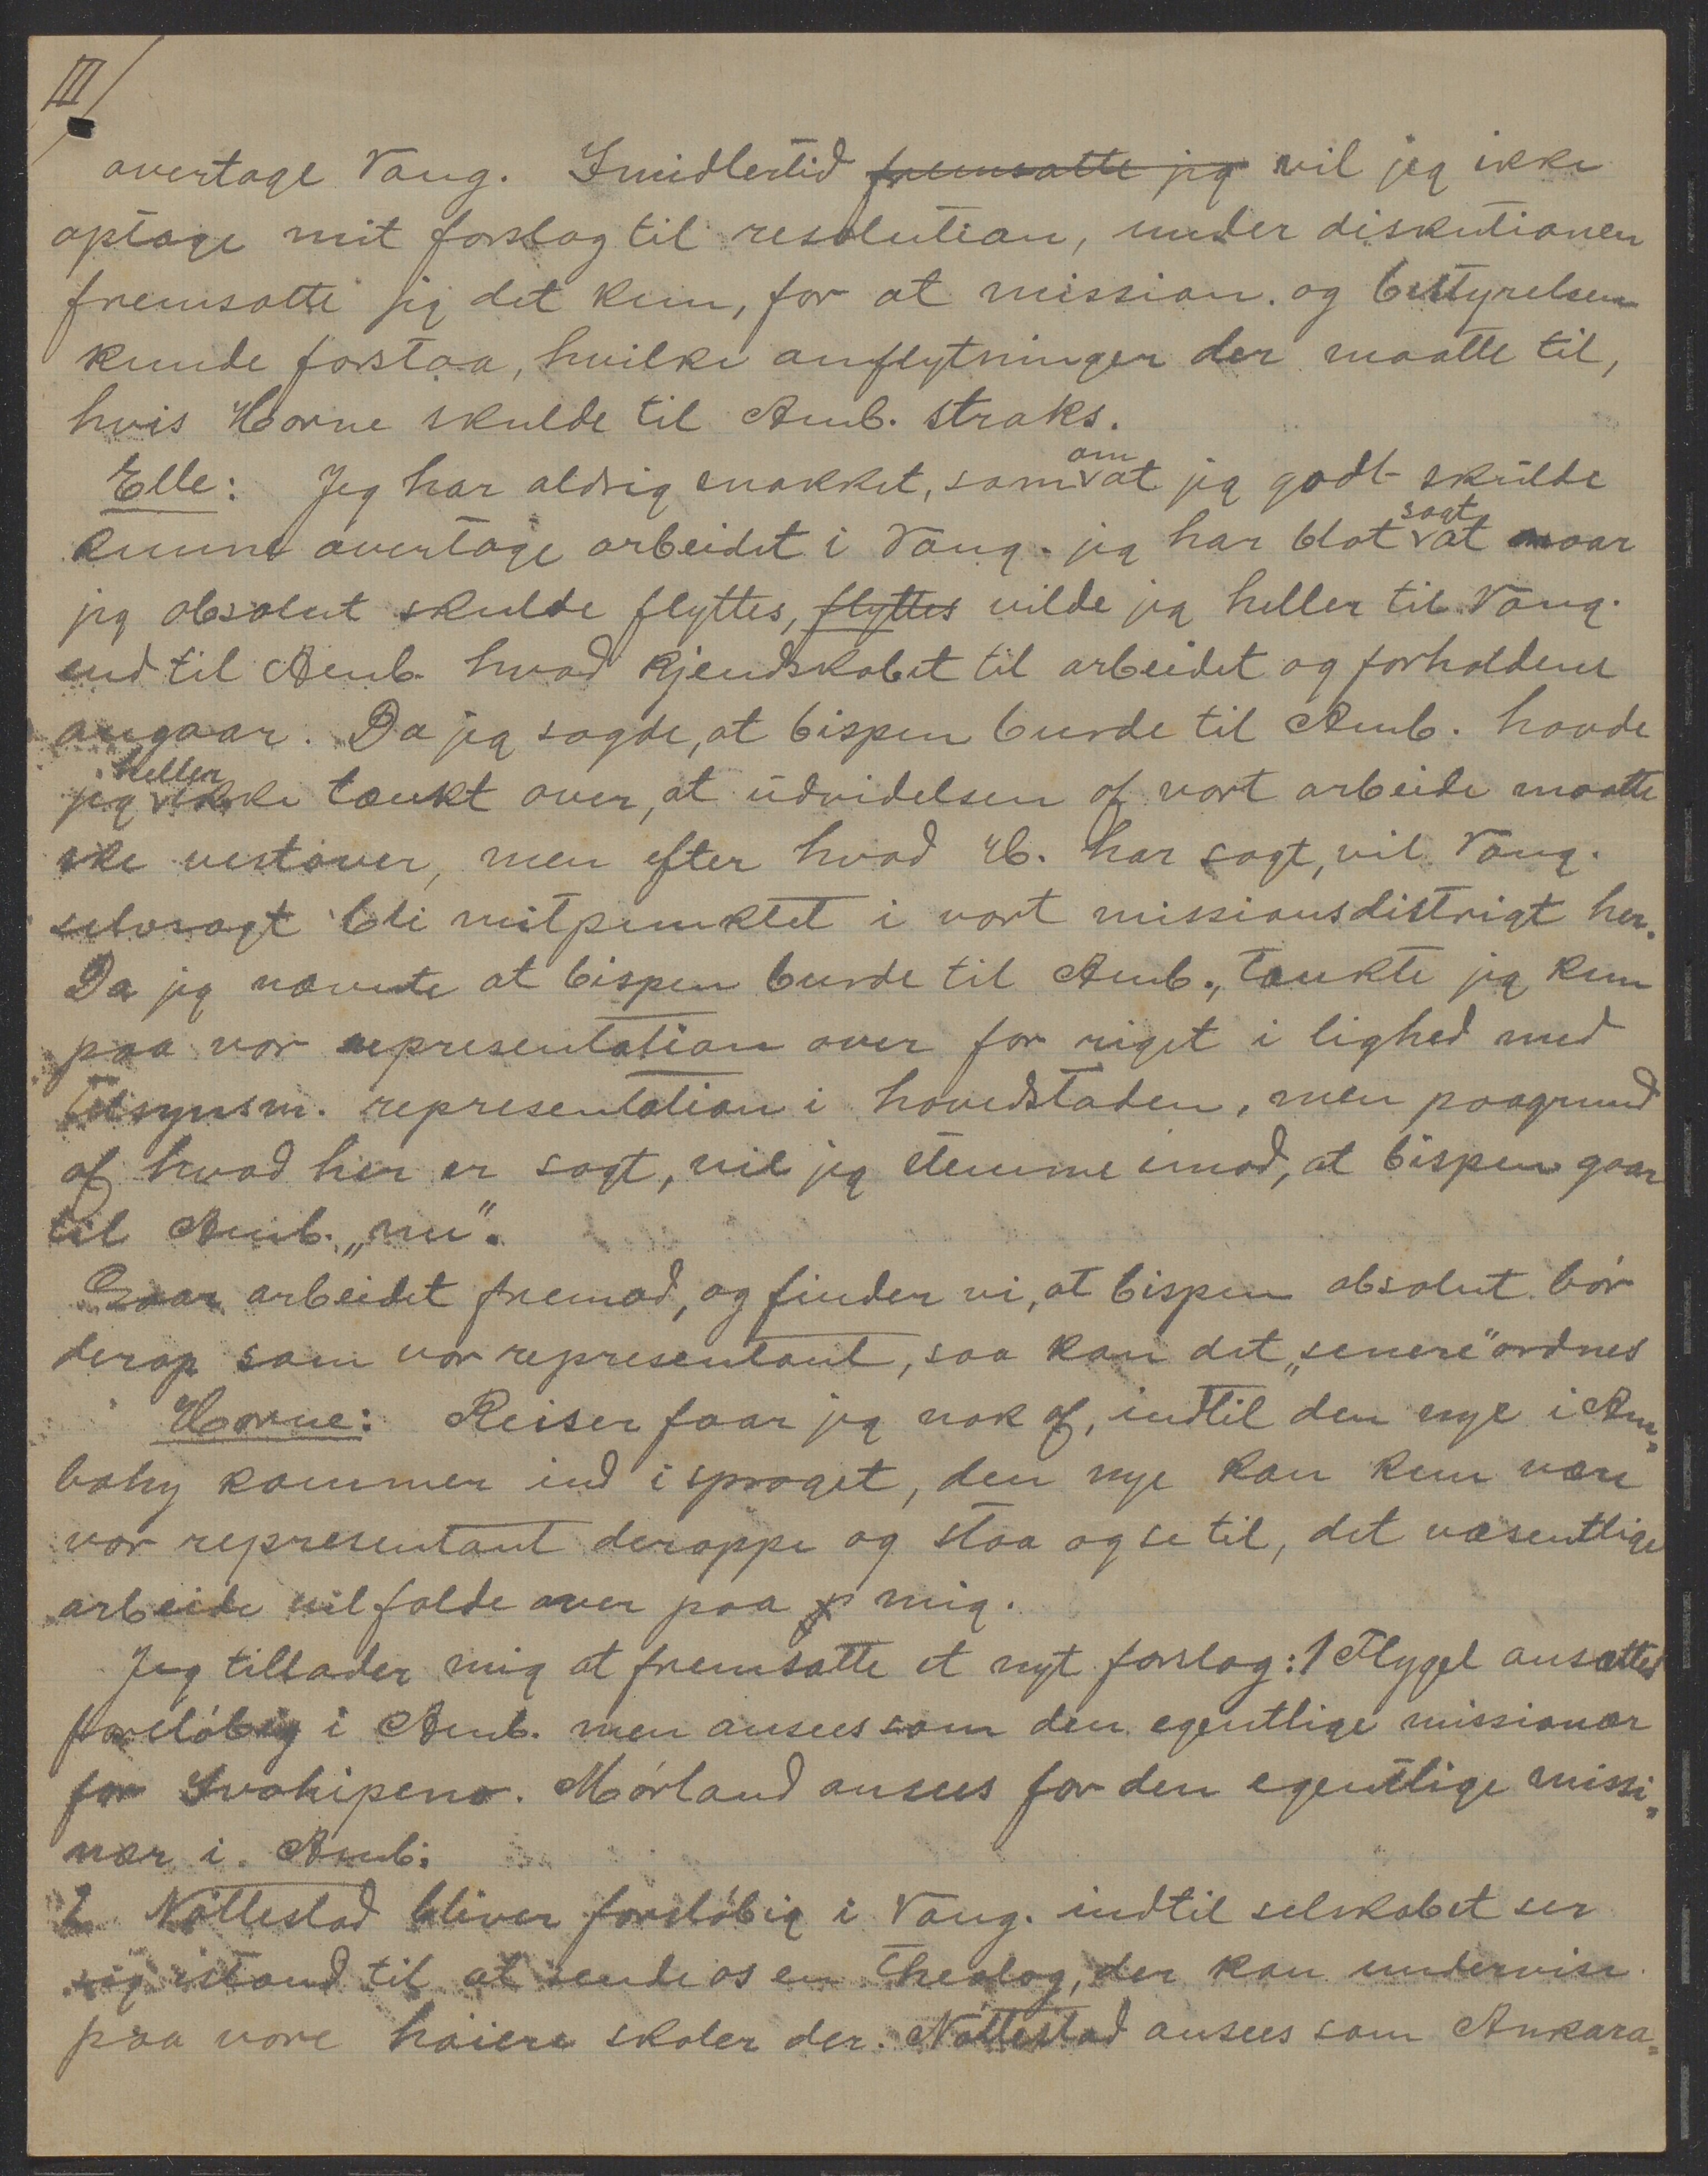 III/
overtage Vang. Imidlertid fremsatte jeg vil jeg ikke
optage mit forslag til resolution, under diskutionen
fremsatte jeg det kun, for at mission. og bestyrelsen
kunde forstaa, hvilke omflytninger der maatte til,
hvis Horne skulde til Amb. straks.
Elle: Jeg har aldrig snakket, som om at jeg godt skulde
kunne overtage arbeidet i Vang. jeg har blot sagt at naar
jeg absolut skulde flyttes, flyttes vilde jeg heller til Vang.
end til Amb. hvad kjendskabet til arbeidet og forholdene
angaar. Da jeg sagde, at bispen burde til Amb. havde
jeg heller ikke tænkt over, at udvidelsen af vort arbeide maatte
ske vestover, men efter hvad H. har sagt, vil Vang.
selvsagt bli mitpunktet i vort missionsdistrigt her.
Da jeg nævnte at bispen burde til Amb., tænkte jeg kun
paa vor representation over for riget i lighed med
Tilsynsm. representation i hovedstaden, men paagrund
af hvad her er sagt, vil jeg stemme imod, at bispen gaar
til Amb. „nu".
Gaar arbeidet fremad, og finder vi, at bispen absolut bór
derop som vor representant, saa kan det „senere" ordnes
Horne: Reiser faar jeg nok af, indtil den nye i Am„
bohy kommer ind i sproget, den nye kan kun være
vor representant deroppe og staa og se til, det væsentlige
arbeide vil falde over paa mig.
Jeg tillader mig at fremsætte et nyt forslag: 1 Flygel ansættes
foreløbig i Amb. men ansees som den egentlige missionær
for Ivohipeno. Mórland ansees for den egentlige missi„
nær i Amb.
2 Nóttestad bliver foreløbig i Vang. indtil selskabet ser
sig istand til at sende os en Theolog, der kan undervise
paa vore høiere skoler der. Nóttestad ansees som Ankara„